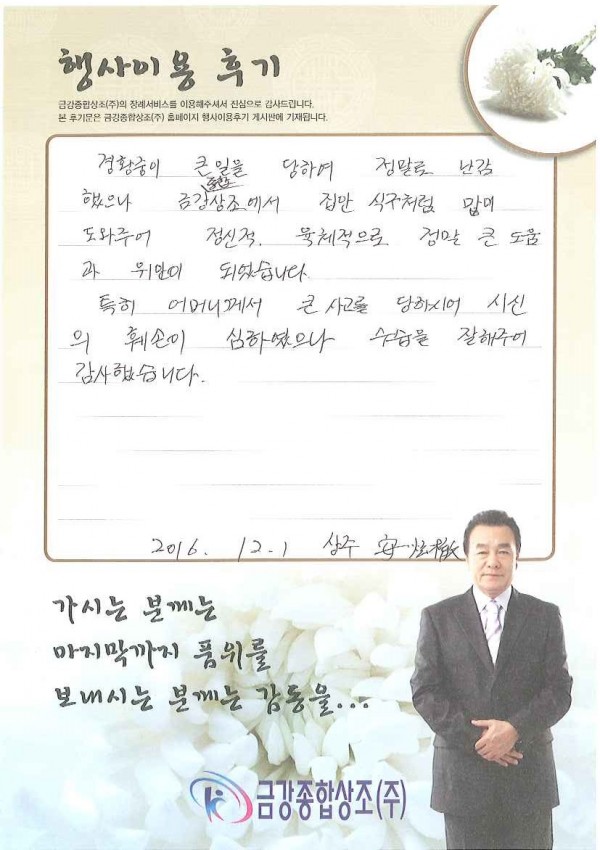 행사이용 후기
금강종합상조(주)의 장례서비스를 이용해주셔서 진심으로 감사드립니다.
본 후기문은 금강종합상조(주) 홈페이지 행사이용후기 게시판에 기재됩니다.
경황중이 큰일을 당하여 정말로 난감
했으나 금강종합상조에서 집안 식구처럼 많이
도와주어 정신적. 육체적으로 정말 큰 도움
과 위안이 되었습니다
특히 어머니께서 큰 사고를 당하시어 시신
의 훼손이 심하였으나 수습을 잘해주어
감사했습니다.
2016. 12. 1 상주
가시는 분께는
마지막까지 품위를
보내시는 분께는 감동을...
금강종합상조(주)